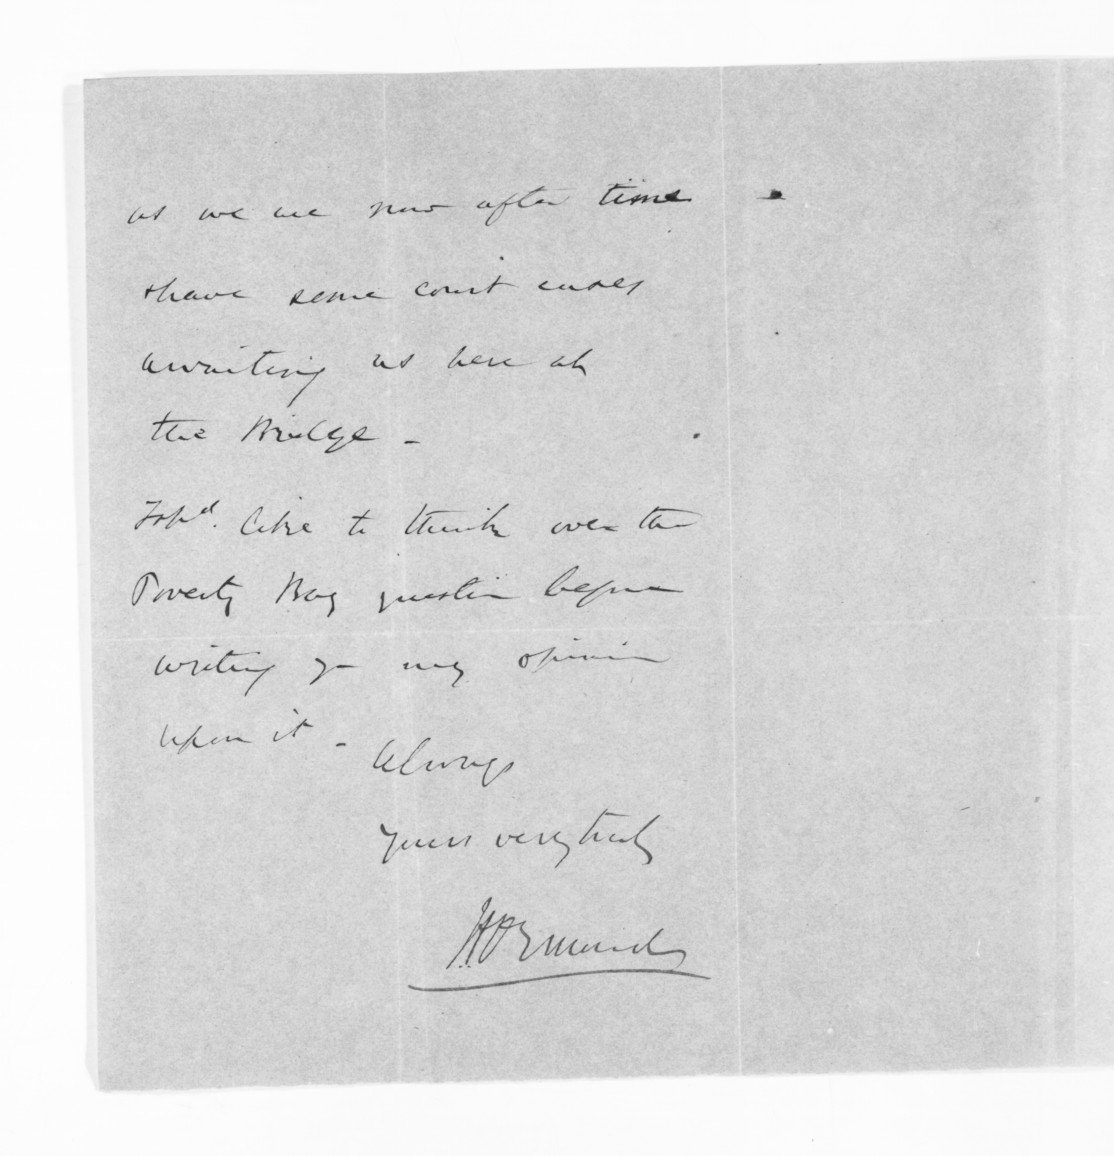 as we are now after time
& have some court cases
awaiting us here at
the Bridge -
I shd. like to think over the
Poverty Bay question before
writing you my opinion
upon it -
Always
Yours very truly